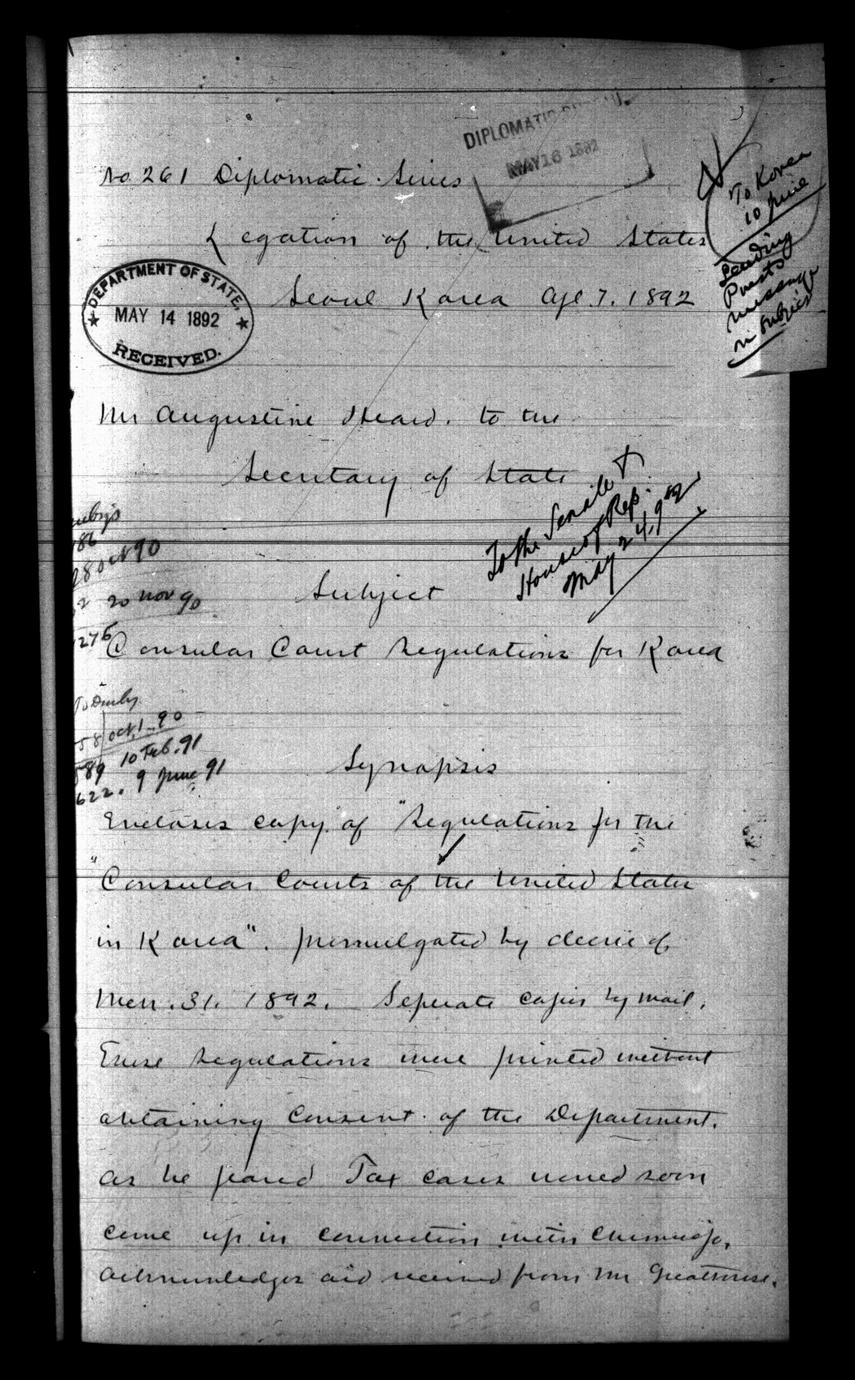 DIPLOMATIC BUREAU.
MAY 16 1892
No 261 Diplomatic Series
To Korea
10 June
Sending
Prest's
message
on subject
Legation of the United States
DEPARTMENT OF STATE,
MAY 14 1892
RECEIVED.
Seoul Korea Apl. 7. 1892
Mr Augustine Heard. to the
Secretary of State
To the Senate &
House of Rep.
May 24, 92
86
28 Oct 90
2 20 Nov 90
276
Subject
Consular Court Regulations for Korea
To Denby
58 Oct, 1-90
589 10 Feb. 91
622. 9 June 91
Synopsis
Encloses copy of "Regulations for the
"Consular Courts of the United States
in Korea". promulgated by decree of
Mch. 31. 1892. Seperate copies by mail.
These Regulations were printed without
obtaining Consent of the Department.
as he feared Tax cases would soon
come up in connection with Chemulpo.
Acknowledges aid received from Mr Greathouse.